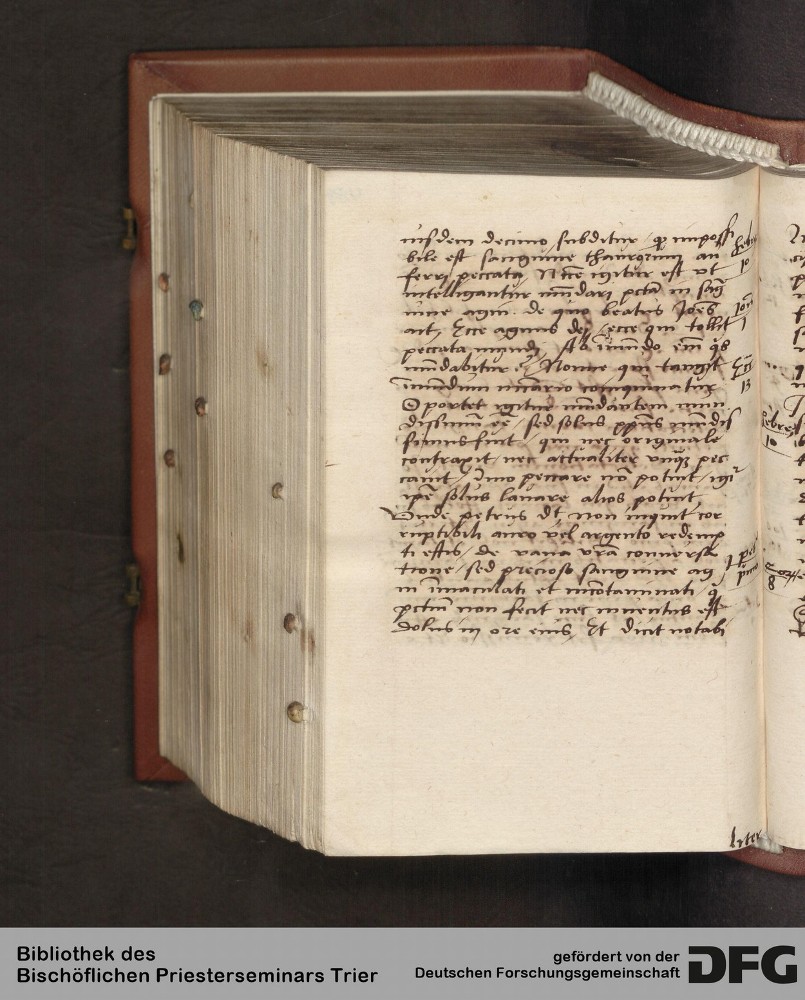 eiusdem decimo subditur / qp impossi
bile est sanguine thaurorum au
ferri peccata Necesse igitur est ut
intelligantur mundari pctā in sāg
uine agni. de quo beatus Joēs
ait, Ecce agnus dei / ecce qui tollit
peccata mundi
mūdabitur Nonne qui tangit
īmundum coinquinatur
Oportet igitur mūdantem mun
dissimum eē / sed solus mūdis
simus fuit, qui nec originale
contraxit nec actualiter unqȝ pec
cauit, ymo peccare nō potuit, igr
ipē solus lauare alios potuit
Unde petrus dt non inquit cor
ruptibili auro vel argento redemp
ti estis, de vana vrā conuersa
tione / sed precioso sanguine ag
ni īmaculati et incōtaminati q̄
pctūm non fecit nec inuentus est
dolus in ore eius, Et dicit notabi
hebre
10
Joā
1
13
hebre
10
1 pet
primo
8
liter
Bibliothek des
Bischöflichen Priesterseminars Trier
gefördert von der
Deutschen Forschungsgemeinschaft
DFG